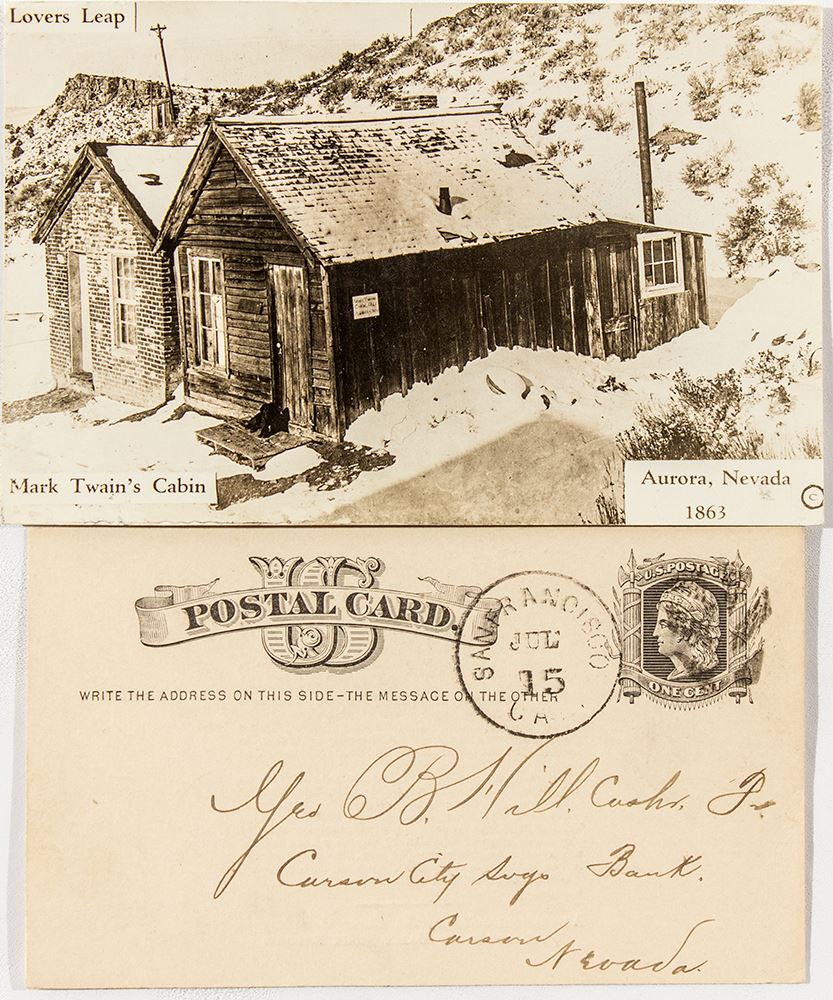 Lovers Leap
Mark Twain's Cabin
Aurora, Nevada
1863
C
US
POSTAL CARD.
WRITE THE ADDRESS ON THIS SIDE-THE MESSAGE ON THE OTHER
SAN FRANCISCO
JUL
15
CAL
U.S. POSTAGE
ONE CENT
Geo B. Hill. Cashr.
Carson City Svgs Bank.
Carson
Nevada.